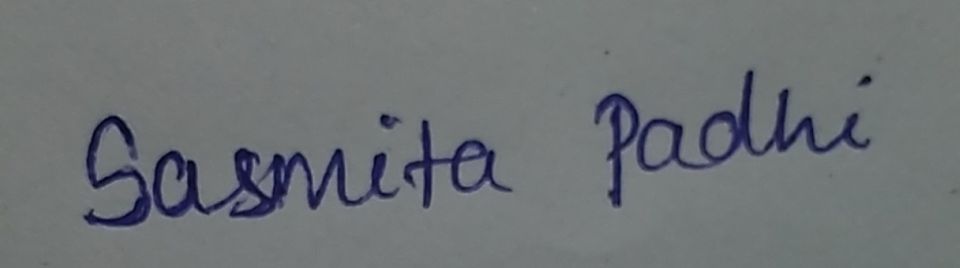 Sasmita Padhi